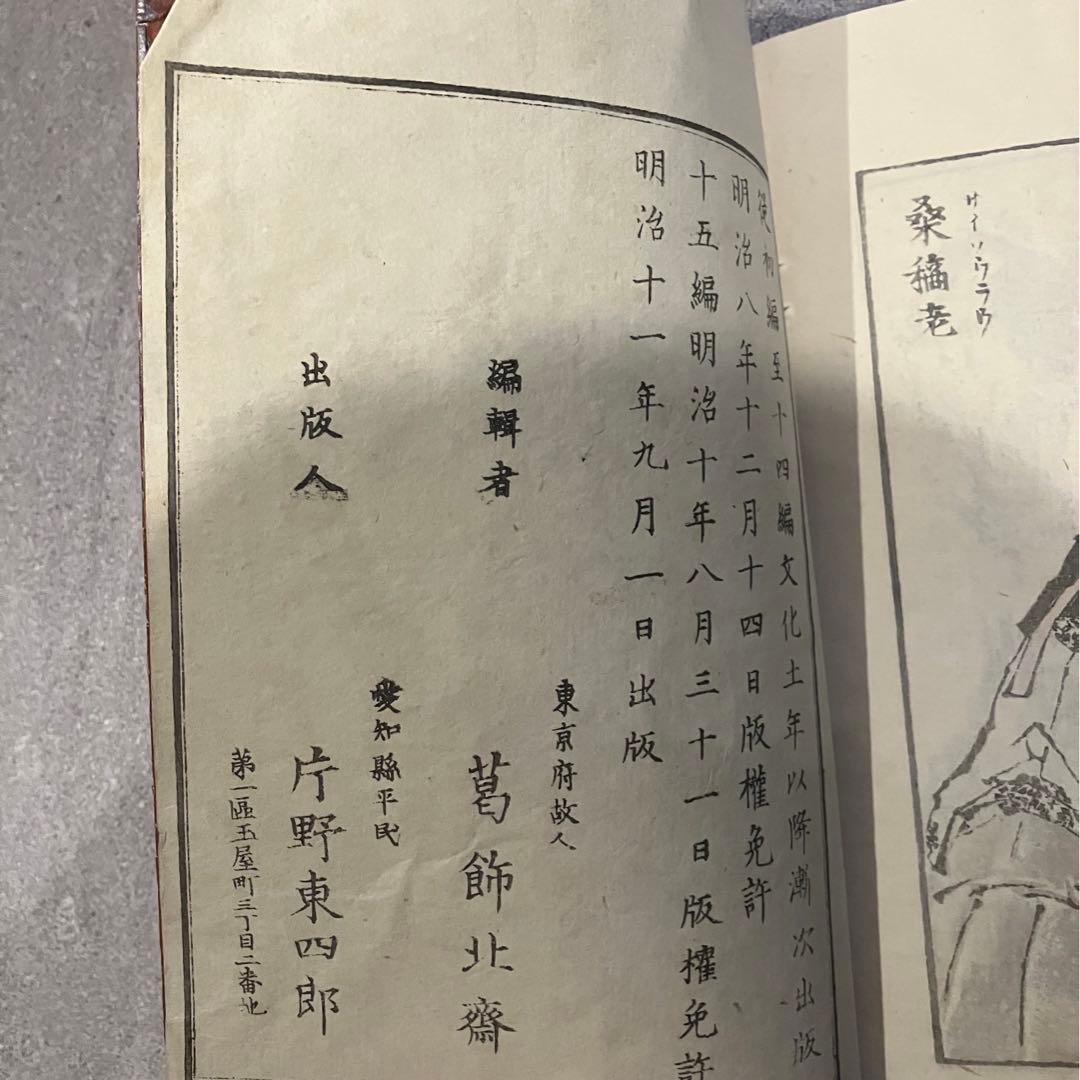 ケイソウラウ
桑老
從初編至十四編文化十一年以降漸次出版
明治八年十二月十四日版權免許
十五編明治十年八月三十一日版權免許
明治十一年九月一日出版
東京府故人
編輯者　葛飾北齋
愛知縣平民
出版人　片野東四郎
第一區玉屋町三丁目二番地